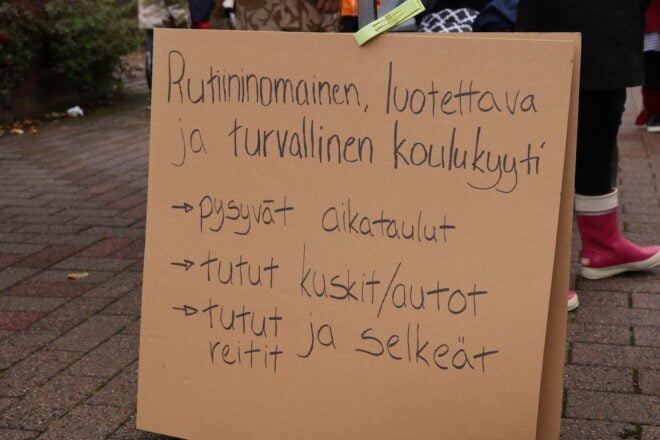 Rutiininomainen, luotettava
ja turvallinen koulukyyti
→ pysyvät aikataulut
→ tutut kuskit/autot
→ tutut ja selkeät
reitit